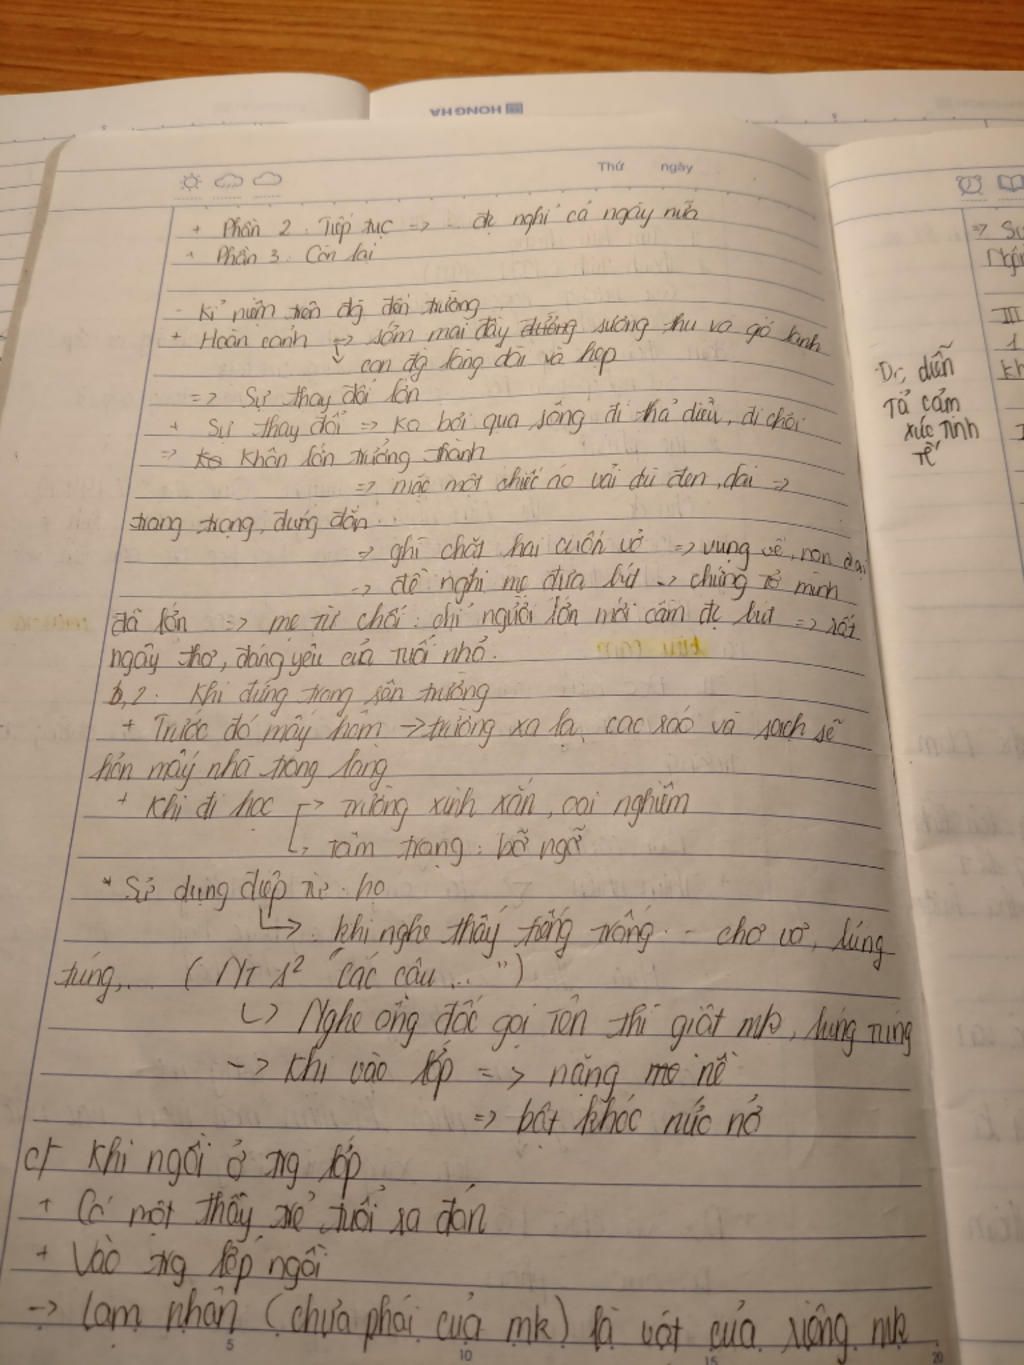 HONG HA
Thứ ngày
+ Phần 2. Tiếp tục => ... đc nghỉ cả ngày nữa
+ Phần 3. Còn lại
- Kỉ niệm trên đg đến trường
+ Hoàn cảnh -> sớm mai đầy sương thu và gió lạnh
↳ con đg làng dài và hẹp
=> Sự thay đổi lớn
+ Sự thay đổi => ko bơi qua sông đi thả diều, đi chơi
=> khôn lớn trưởng thành
=> mặc một chiếc áo vải dù đen, dài =>
trang trọng, đứng đắn...
=> ghì chặt hai cuốn vở => vụng về, non dại
=> đề nghị mẹ đưa bút -> chứng tỏ mình
đã lớn => mẹ từ chối: chỉ người lớn mới cầm đc bút => rất
ngây thơ, đáng yêu của tuổi nhỏ.
b, 2. Khi đứng trong sân trường
+ Trước đó mấy hôm -> trường xa lạ, cao ráo và sạch sẽ
hơn mấy nhà trong làng
+ Khi đi học -> trường xinh xắn, oai nghiêm
↳ tâm trạng: bỡ ngỡ
* Sử dụng điệp từ: họ
↳ khi nghe thấy tiếng trống... chơ vơ, lúng
túng,... ( NT s² "các cậu..." )
↳ Nghe ông đốc gọi tên thì giật mk, lúng túng
-> Khi vào lớp => nặng nề
=> bật khóc nức nở
c, Khi ngồi ở trg lớp
+ Có một thầy trẻ tuổi ra đón
+ Vào trg lớp ngồi
-> Lạm nhận (chưa phải của mk) là vật của riêng mk
5 10 15 20
Dr, diễn
Tả cảm
xúc tinh
tế
=> Sự
III
1